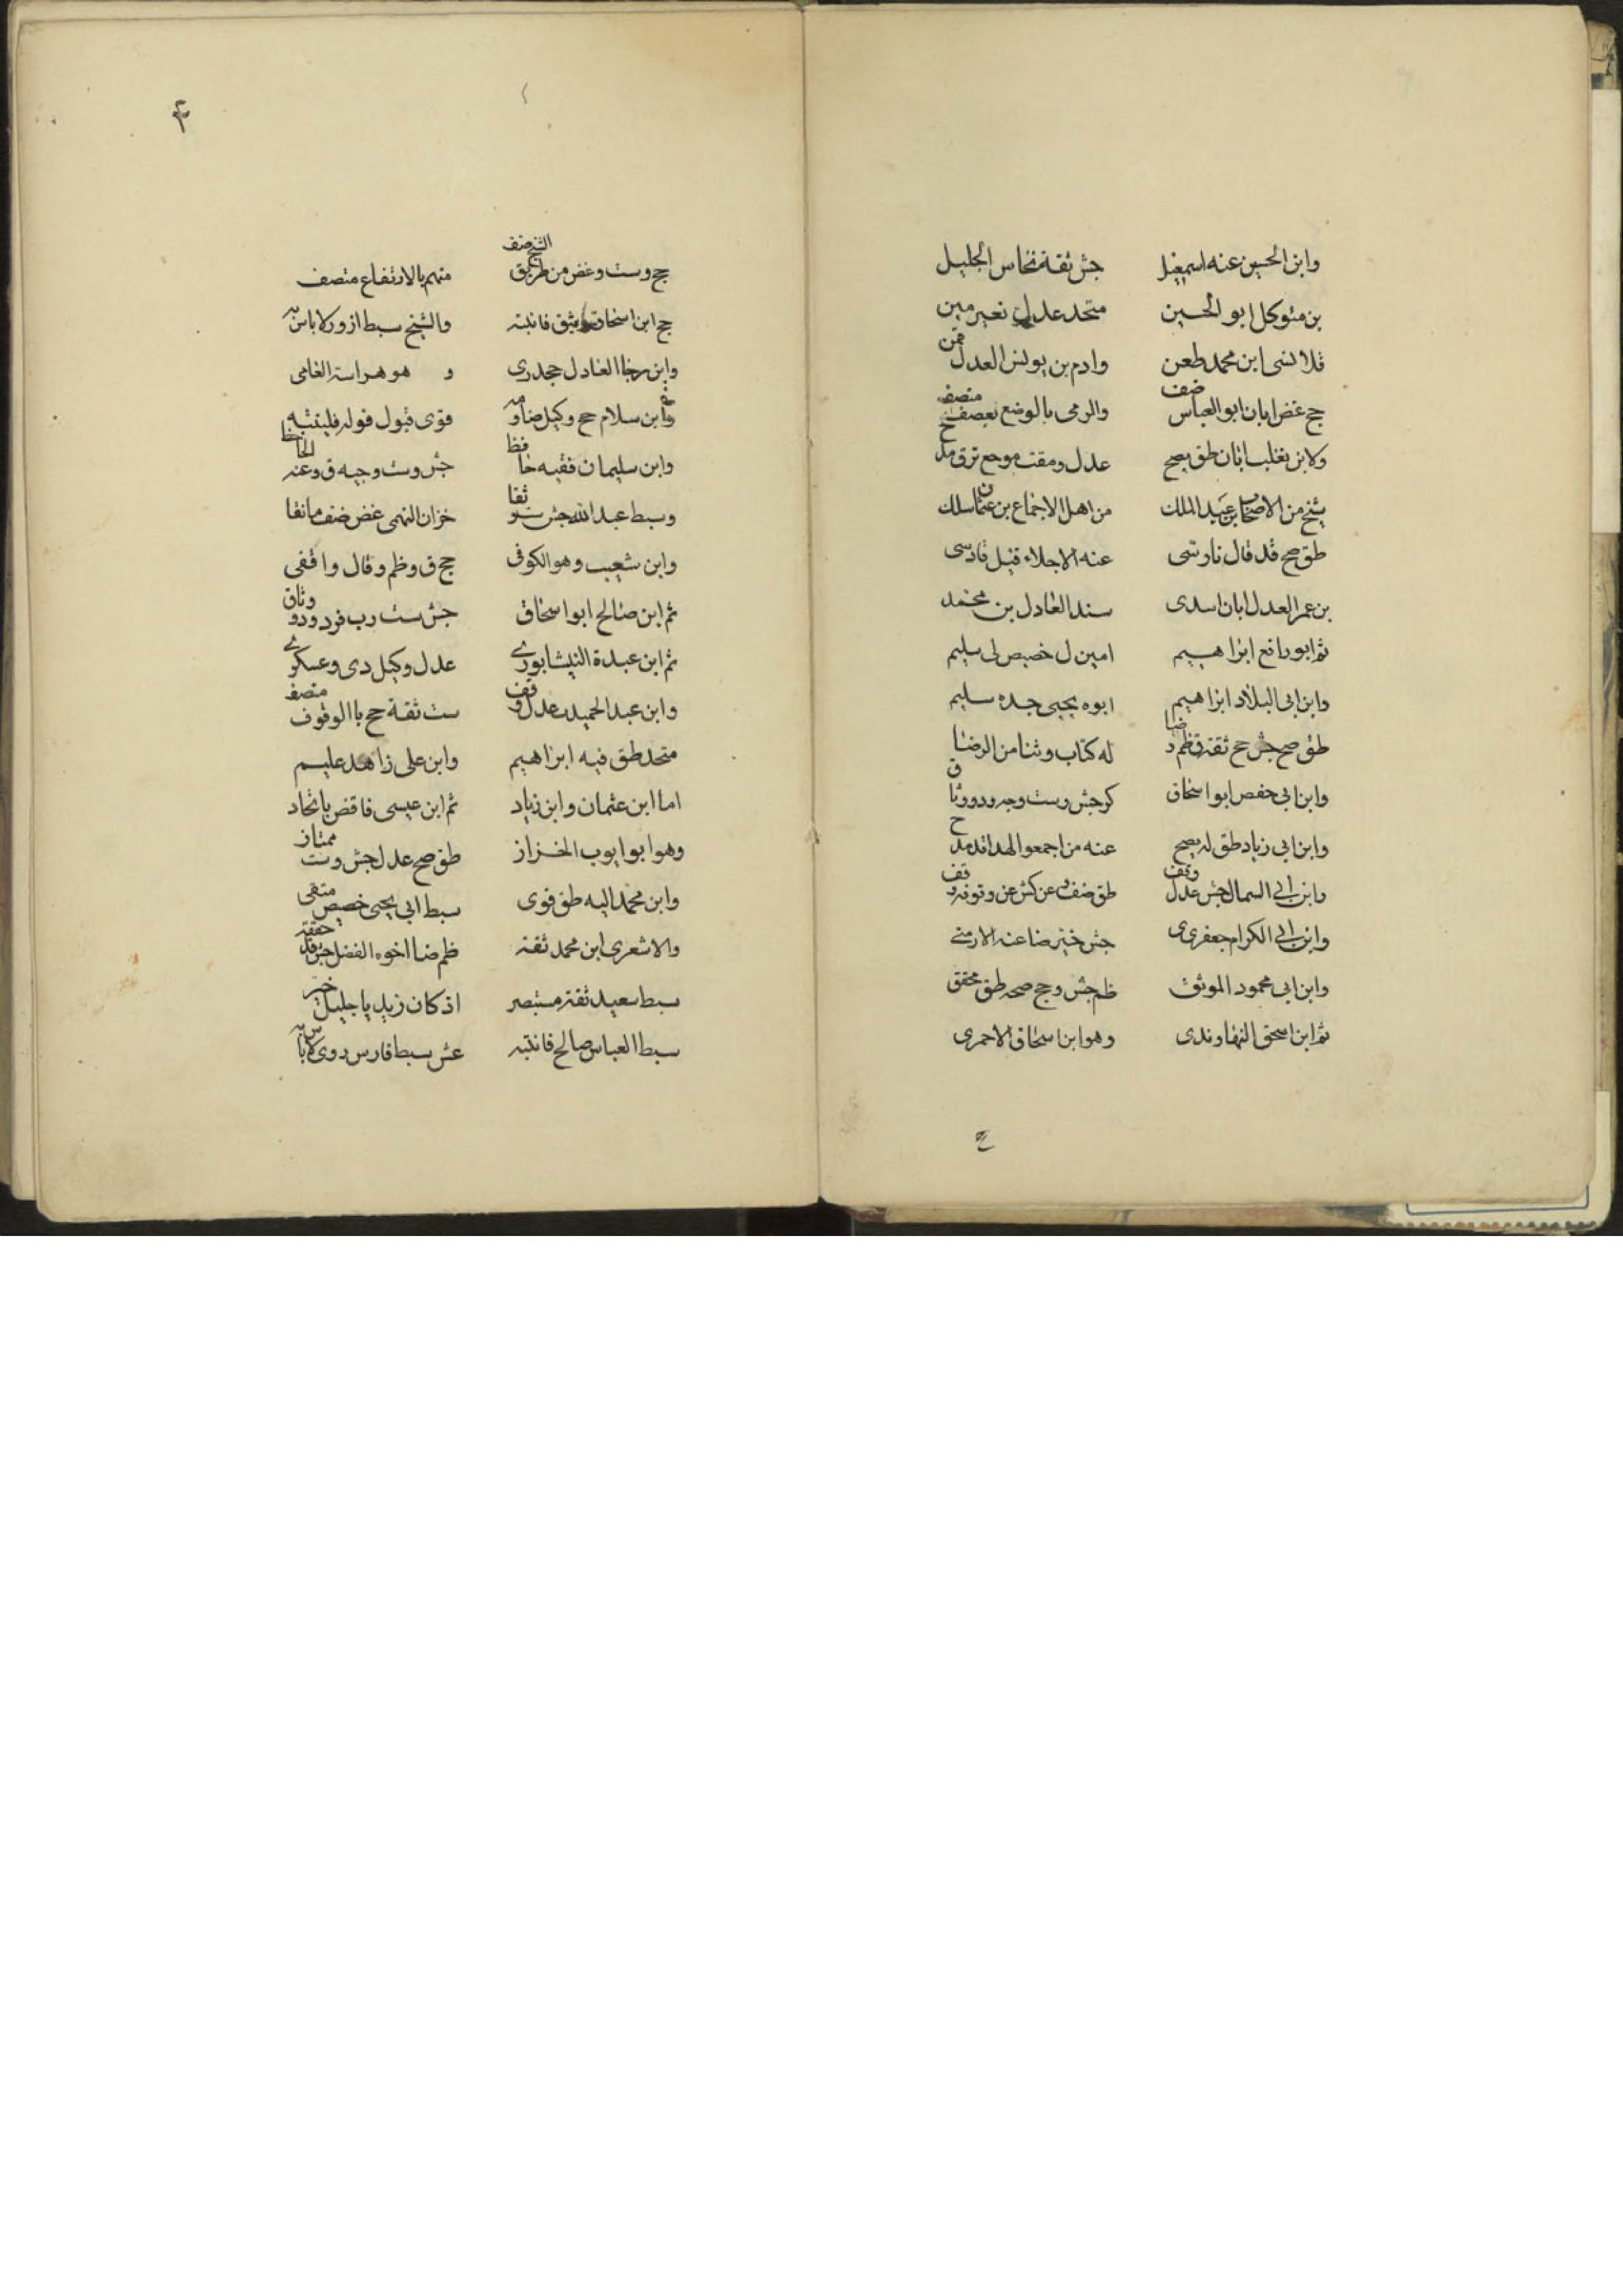 وابن الحسين عنه اسمعيل جش ثقة نخاس الجليل
بن متوكل ابو الحسين متحد عدل نعير مين
قلانسى ابن محمد طعن وادم بن يونس العدل قمن
جج غض ابان ابو العباس ضف والرمى بالوضع تعصف منصف
ولابن تغلب ابان طق يصح عدل ومقت موجع ترق مدح
شيخ من الاصحاب بن عبد الملك من اهل الاجماع بن عثمان سلك
طق صح قد قال ناوسى عنه الاجلاء قيل قادسى
بن عمر العدل ابان اسدى سند العادل بن محمد
ثم ابو رافع ابراهيم امين ل خصيص لى سليم
وابن ابى البلاد ابراهيم ابوه يحيى جده سليم
طق صح جش جح ثقة ق ظم د ضا له كتاب وثنا من الرضا
وابن ابى حفص ابو اسحاق كر جش وست وجه ودو وثاق
وابن ابى زياد طق له يصح عنه من اجمعوا لهذا قد مدح
وابن ابى السمال جش عدل وقف طق ضف عن كش عن وتوفه وقف
وابن ابى الكرام جعفرى جش خير ضا عنه الارمنى
وابن ابى محمود الموثق ظم جش وجج صحه طق محقق
ثم ابن اسحق النهاوندى وهو ابن اسحاق الاحمرى
۴
جج وست وغض من طريق الشيخ ضف متهم بالارتفاع متصف
جج ابن اسحاق وثيق فانتبه والشيخ سبط ازور لا باس به
وابن رجا العادل جحدرى و هو هراسة العامى
وابن سلام جج وكيل ضا قوى قبول قوله فلينتبه
وابن سليمان فقيه حافظ جش وست وجيه ق وعنه الحافظ
وسبط عبد الله جش ثقا خزان النهمى غض ضف ما نقا
وابن شعيب وهو الكوفى جج ق وظم وقال واقفى
ثم ابن صالح ابو اسحاق جش ست رب فرد ودو وثاق
ثم ابن عبدة النيشابورى عدل وكيل دى وعسكرى
وابن عبد الحميد عدل وقف ست ثقة جج با الوقوف منصف
متحد طق فيه ابراهيم وابن على زاهد عليم
اما ابن عثمان وابن زياد ثم ابن عيسى فاقض باتحاد
وهو ابو ايوب الخزاز طق صح عدل جش وست ممتاز
وابن محمد اليه طق قوى سبط ابى يحيى خصيص متقى
والاشعرى ابن محمد ثقة ظم ضا اخوه الفضل جش قد حققه
سبط سعيد ثقة مستبصر اذ كان زيديا جليل خبر
سبط العباس صالح فانتبه عش سبط فارس دوى لا باس به